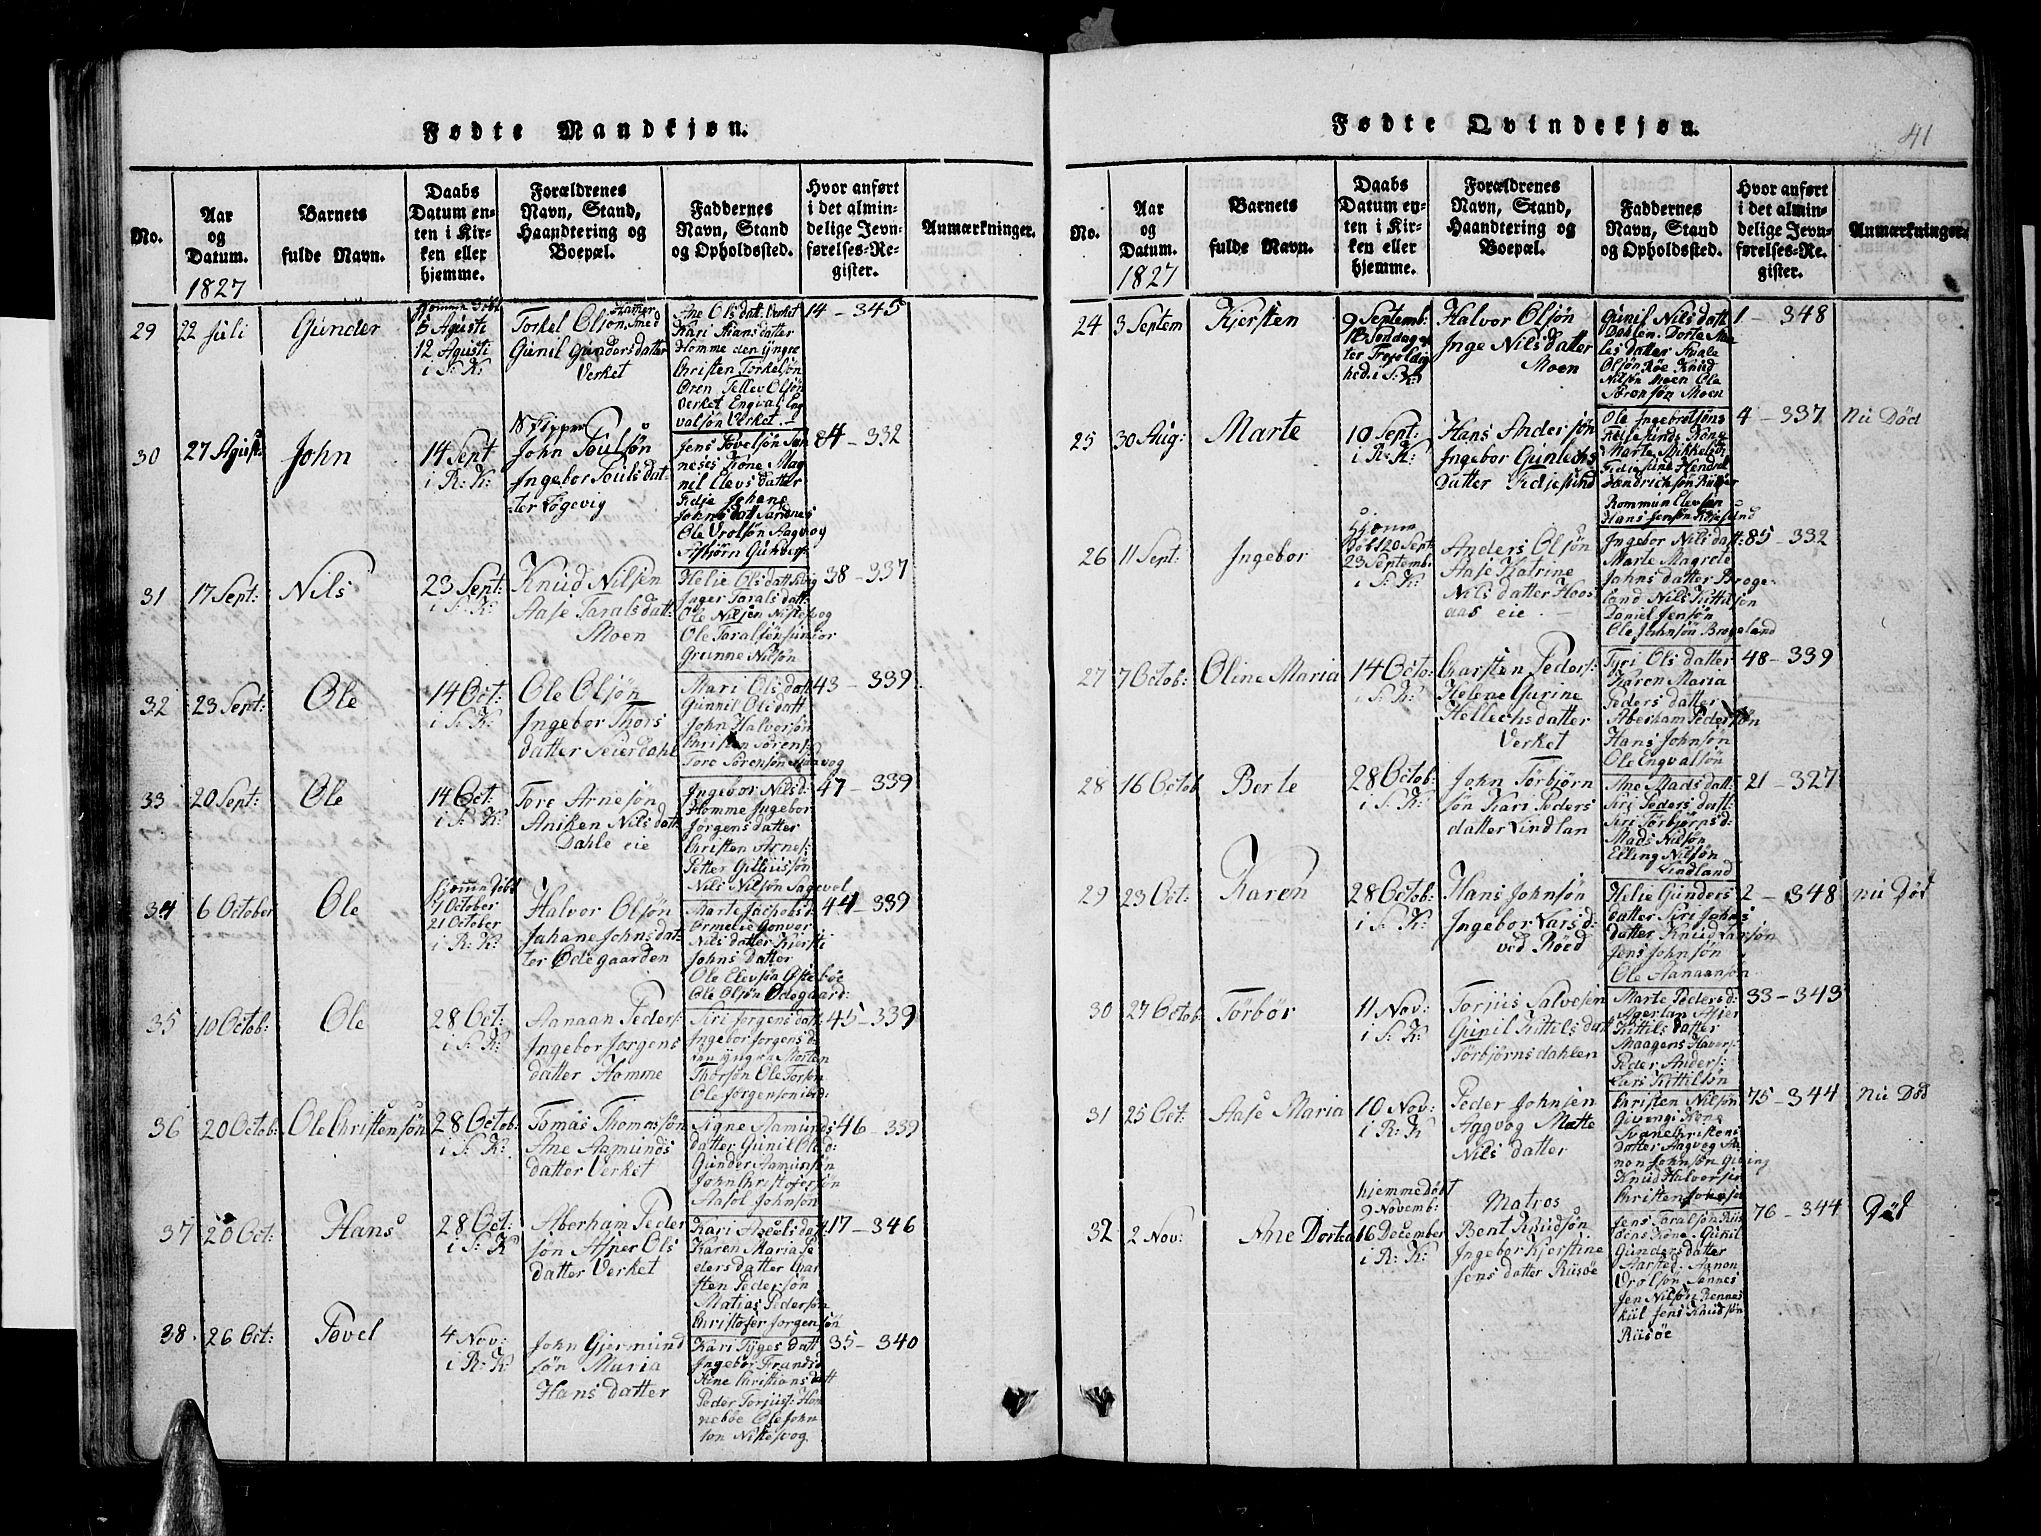 Fødte Mandkjøn.
No.
Aar
og
Datum.
1827
Barnets
fulde Navn.
Daabs
Datum en-
ten i Kir-
ken eller
hjemme.
Forældrenes
Navn, Stand,
Haandtering og
Boepæl.
Faddernes
Navn, Stand
og Opholdssted.
Hvor anført
i det almin-
delige Jevn-
førelses-Re-
gister.
Anmærkninger.
29
22 Juli
Gunder
Hjemme døbt
5 Agusti
12 Agusti
i S: K:
Torkel Olsøn
Gunil Gundersdatter
Verket
Ane Olsdat: Verket
Kari Hansdatter
Homme den yngre
Christen Torkelsøn
Øren Tellev Olsøn
Verket Engval Eng
valsøn Verket
14 - 345
30
27 Agust:
John
14 Sept
i R: K:
John Poulsøn
Ingebor Pouls dat-
ter Løgevig
Jens Povelsøn San
neses Kone Mag
nil Elevs datter
Fidje Johane
Johns datt Sandnes
Ole Vrolsøn Aagvog
84 - 332
31
17 Sept:
Nils
23 Sept:
i S: K:
Knud Nilsen
Aase Taralsdatt:
Moen
Helie Olsdatt
Inger Tarals datt:
Ole Nilsen
Ole Taralsen junior
Grunne Nilsøn
38 - 337
32
23 Sept:
Ole
14 Oct:
i S: K:
Ole Olsøn
Ingebor Thors
datter Seierdahl
Mari Ols datt
Gunnil Ols datt
John Halvorsøn
Christen Sørens:
Tore Sørensøn
43 - 339
33
20 Sept:
Ole
14 Oct:
i S: K:
Tore Arnesøn
Aniken Nils datt
Dahle eie
Ingebor Nils d:
Homme Ingebor
Jørgens datter
Christen Arnes:
Petter Gilliussøn
Nils Nilsøn Sagevol
47 - 339
34
6 October
Ole
hjemme døbt
7 October
21 October
i R: K:
Halvor Olsøn
Johane Johns dat-
ter Ødegaarden
Marte Jacobs d:
Ormelie Gonvor
Nils datter Kjersti
Johns Datter
Ole Elevsøn Østebøe
Ole Olsøn Ødegaard:
44 - 339
35
10 Octob:
Ole
28 Oct:
i S: K:
Aanaan Peders:
Ingebor Jørgens
datter Homme
Siri Jørgens datt:
Ingebor Jørgens d:
den yngre Morten
Thorsøn Ole Torsøn
Ole Jørgenson ibid:
45 - 339
36
20 Octob:
Ole Christensøn
28 Octob:
i S: K:
Tomas Thomasøn
Ane Asmunds
datter Verket
Signe Aamunds
datter Gunil Ols d:
Gunder Aamunsøn
John Christofersøn
Aasol Johnsøn
46 - 339
37
20 Oct:
Hans
28 Oct:
i S: K
Aberham Peder
søn Asper Ols
datter Verket
Kari Axels dat
Karen Maria Pe
ders datter Car
sten Pedersøn
Matias Pedersøn
Christofer Jorgensøn
17 - 346
38
26 Oct:
Povel
4 Nov:
i R: K:
John Gjermund
søn Maria
Hans datter
Kari Tyges datt
Ingebor Frands d
Ane Christians datt
Peder Torjus: Hon
nebøe Ole John
søn Nistevog
35 - 340
Fødte Qvindekjøn.
41
No.
Aar
og
Datum.
1827
Barnets
fulde Navn.
Daabs
Datum en-
ten i Kir-
ken eller
hjemme.
Forældrenes
Navn, Stand,
Haandtering og
Boepæl.
Faddernes
Navn, Stand
og Opholdssted.
Hvor anført
i det almin-
delige Jevn-
førelses-Re-
gister.
Anmærkninger.
24
3 Septem
Kjersten
9 Septemb:
Søndag ef
ter Trefoldig
hed. i S: K:
Halvor Olsøn
Inge Nils datter
Moen
Gunil Nils datt
Dahlen. Dorte Ma
les datter
Olsøn Røe Knud
Nilsøn Moen Ole
Sørensøn Moen
1 - 348
25
30 Aug:
Marte
10 Sept:
i R: K:
Hans Andersøn
Ingebor Gunlechs
Datter Fidjesund
Ole Ingebretsøns
Fidjesunds Kone
Marte Mikkels d:
Hendrichsøn
Hans Jensøn
4 - 337
nu Død
26
11 Sept:
Ingebor
hjemme
døbt 20 Sept
23 Septemb:
i S: K:
Anders Olsøn
Aase Katrine
Nils datter Hoos
aas eie
Ingebor Nils datt:
Marte Magrete
Johns datter Broge
land Nils Kittilsøn
Daniel Jensøn
Ole Johnsøn Brogeland
85 - 332
27
7 Octob:
Oline Maria
14 Octo:
i S: K:
Carsten Peders:
Helene Gurine
Hellechs datter
Verket
Tyri Ols datter
Karen Maria
Peders datter
Aberham Pedersøn
Hans Johnsøn
Ole Engvalsøn
48 - 339
28
16 Octob
Berte
28 Octob:
i S: K:
John Torbjørn
søn Kari Peders
datter Lindlan
Ane Mads datt:
Siri Peders datt:
Siri Torbjørns d:
Mads Nilsøn
Elling Nilsøn
Lindland
21 - 327
29
23 Oct:
Karen
28 Octob:
i S: K:
Hans Johnsøn
Ingebor Lars d:
ved Røed
Helie Gunders
datter Siri Johns
datter Knud Larsøn
Jens Johnsøn
Ole Aanaansøn
2 - 348
nu Død
30
27 Octob:
Torbor
11 Nov:
i S: K:
Torjus Salvesen
Gunil Kittels datt
Torbjørnsdahlen
Marte Peders d:
Agerlan Asjer
Kittels datter
Maagens Havors:
Peder Anders:
Lars Kittilsøn
33 - 343
31
25 Oct:
Aase Maria
10 Nov:
i R: K
Peder Johnsen
Aggvog Mætte
Nils datter
Christen Nilsøn
Givengs Kone
Svane Christens
Datter Aagvog Aa
non Johnsøn Giving
Knud Halvorsen
Christen Johnsøn
75 - 344
nu Død
32
2 Nov:
Ane Dortea
hjemme døbt
9 Novemb:
16 December
i R: K:
Matros
Bent Knudsøn
Ingebor Kjerstine
Jens datter Riisøe
Jens Taralsøn Riis
øens Kone. Gunil
Gunders datter
Aarsted. Aanon
Vrolsøn Sannes
Jen Nilsøn Rennes
kiil Jens Knudsøn
Riisøe
76 - 344
Død